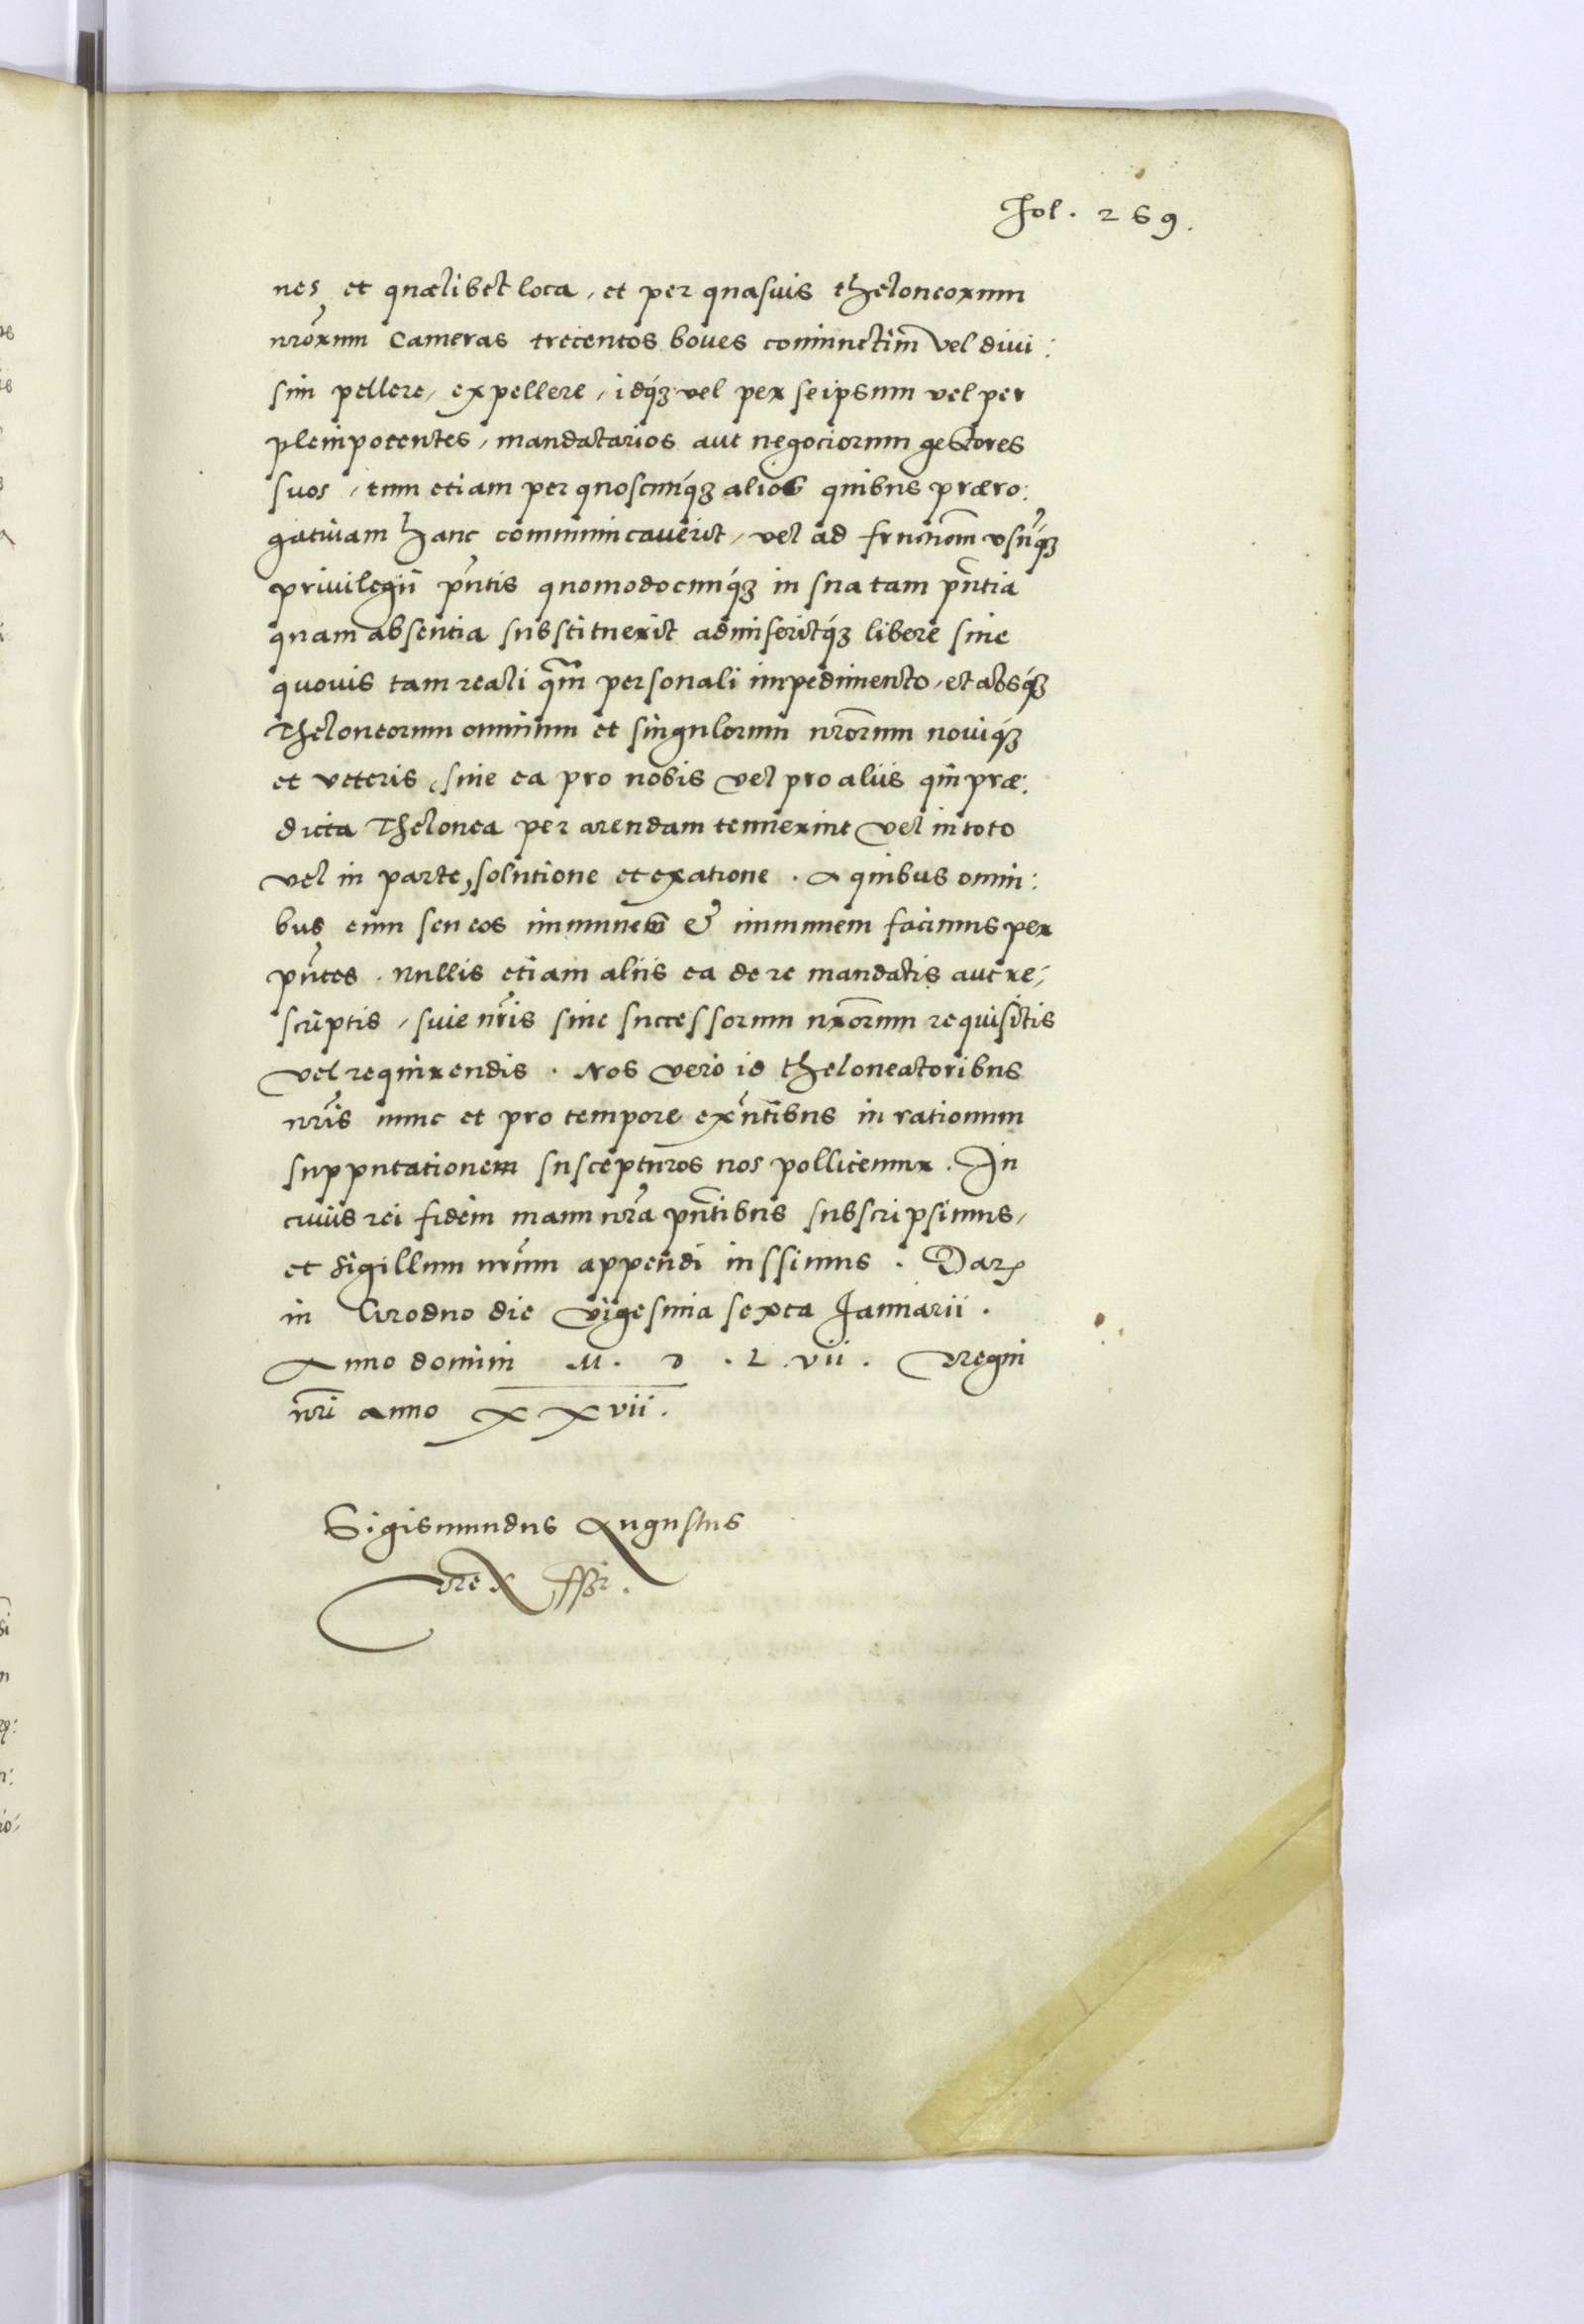 Fol. 269.
nes et quælibet loca, et per quasuis theloneorum
nr̃orum Cameras trecentos boves coniunctim̃ vel diui:
sim pellere, expellere, idq́ꝫ vel per seipsum vel per
plenipotentes, mandatarios aut negociorum gestores
suos, tum etiam per quoscunq́ꝫ alios quibus præro:
gativam hanc communicaverit, vel ad fruitiom̃ usũq́ꝫ
privilegii pñtis quomodocunq́ꝫ in sua tam pñtia
quam absentia substituerit admiseritq́ꝫ libere sine
quovis tam reali qm̃ personali impedimento, et absq́ꝫ
Theloneorum omnium et singulorum nr̃orum noviq́ꝫ
et veteris, siue ea pro nobis vel pro aliis qui præ:
dicta Thelonea per arendam tenuerint vel in toto
vel in parte, solutione et exatione. A quibus omni:
bus eum seu eos immunem & immunem facimus per
pñtes. Nullis etiam aliis ea de re mandatis aut re:
scriptis, suie nr̃is siue successorum nr̃orum requisitis
vel requirendis. Nos vero id theloneatoribus
nr̃is nunc et pro tempore exñtibus in rationum
supputationem suscepturos nos pollicemur. In
cuius rei fidem manu nr̃a pñtibus subscripsimus,
et sigillum nr̃um appendi iussimus. Datꝭ
in Grodno die vigesima sexta Januarii.
Anno domini M. D. L. vii. Regni
nr̃i anno XXvii.
Sigismundus Augustus
Rex ssr̃.